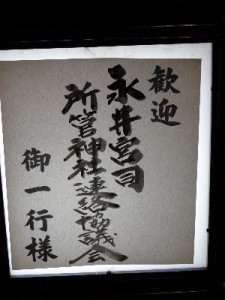 歓迎
永井宮司
所管神社連絡協議会
御一行様